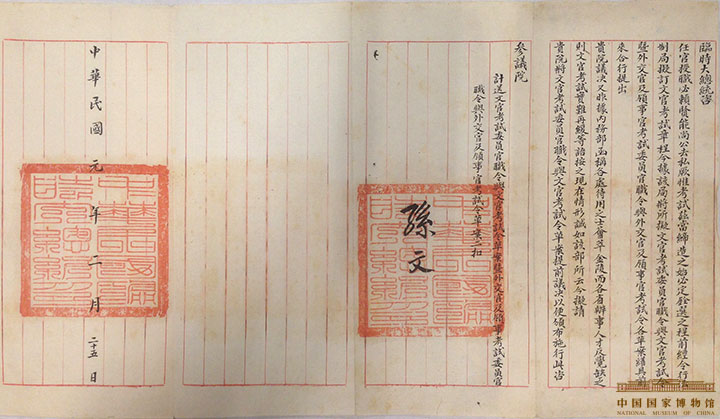 臨時大總統咨
任官授職必賴賢能尚公去私厥惟考試茲當締造之始必定銓選之程前經令行法
制局擬訂文官考試章程今據該局將所擬文官考試委員官職令與文官考試令
暨外交官及領事官考試委員官職令與外交官及領事官考試令各草案繕具前
來合行提出
貴院議決又昨據內務部函稱各處待用之士薈萃金陵而各省辦事人才反覺缺乏
則文官考試實難再緩等語按之現在情形誠如該部所云今擬請
貴院將文官考試委員官職令與文官考試令草案提前議決以便頒布施行此咨
參議院
計送文官考試委員官職令與文官考試令草案暨外交官及領事考試委員官
職令與外交官及領事官考試令草案二扣
孫文
中華民國元年二月二十五日
中国国家博物馆
NATIONAL MUSEUM OF CHINA